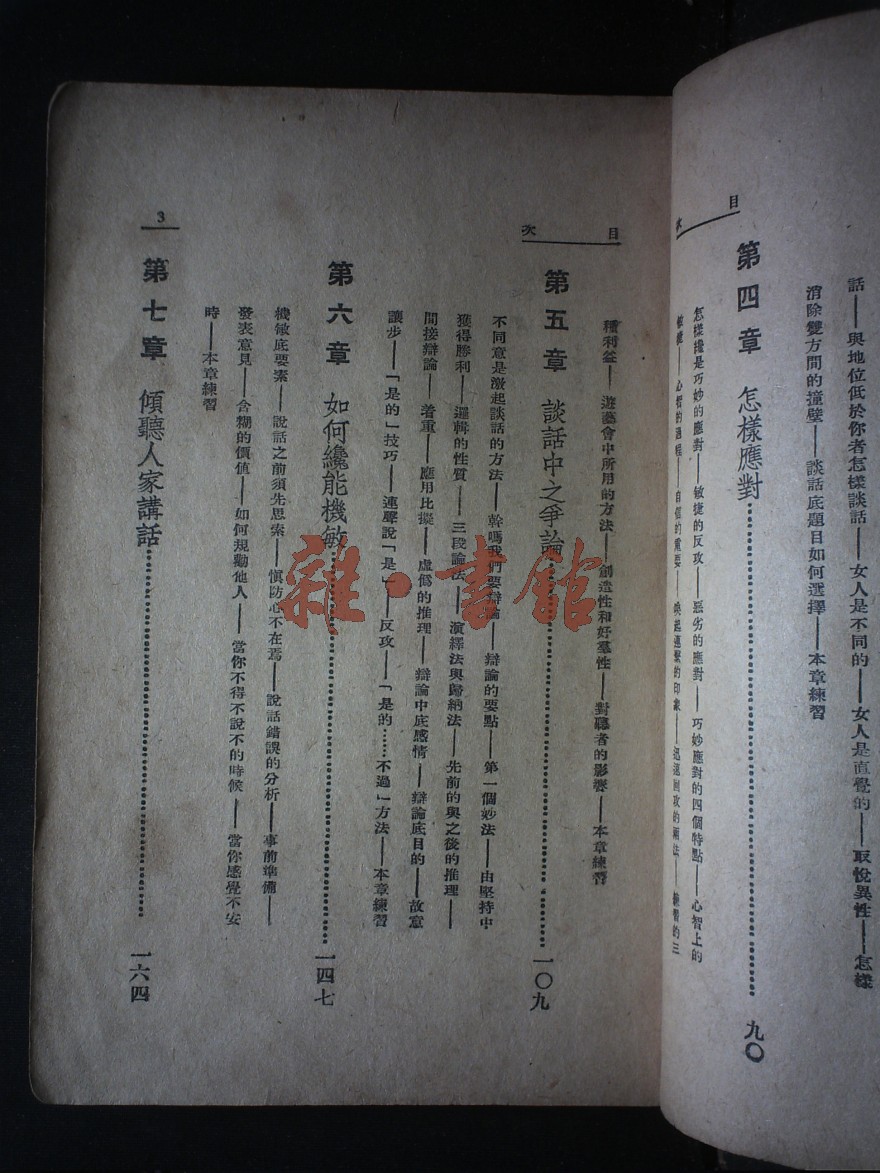 目
話——與地位低於你者怎樣談話——女人是不同的——女人是直覺的——取悅異性——怎樣
消除雙方間的撞壁——談話底題目如何選擇——本章練習
第四章 怎樣應對 九〇
怎樣纔是巧妙的應對——敏捷的反攻——惡劣的應對——巧妙應對的四個特點——心智上的
敏捷——心智的過程——自信的重要——喚起連繫的印象——迅速回攻的辦法——練習的三
目次
種利益——遊藝會中所用的方法——創造性和好羣性——對聽者的影響——本章練習
第五章 談話中之爭論 一〇九
不同意是激起談話的方法——幹嗎我們要辯論——辯論的要點——第一個妙法——由堅持中
獲得勝利——邏輯的性質——三段論法——演繹法與歸納法——先前的與之後的推理——
間接辯論——着重——應用比擬——虛僞的推理——辯論中底感情——辯論底目的——故意
讓步——「是的」技巧——連聲說「是」——反攻——「是的……不過」方法——本章練習
第六章 如何纔能機敏 一四七
機敏底要素——說話之前須先思索——慎防心不在焉——說話錯誤的分析——事前準備——
發表意見——含糊的價值——如何規勸他人——當你不得不說不的時候——當你感覺不安
時——本章練習
第七章 傾聽人家講話 一六四
3
雜·書館